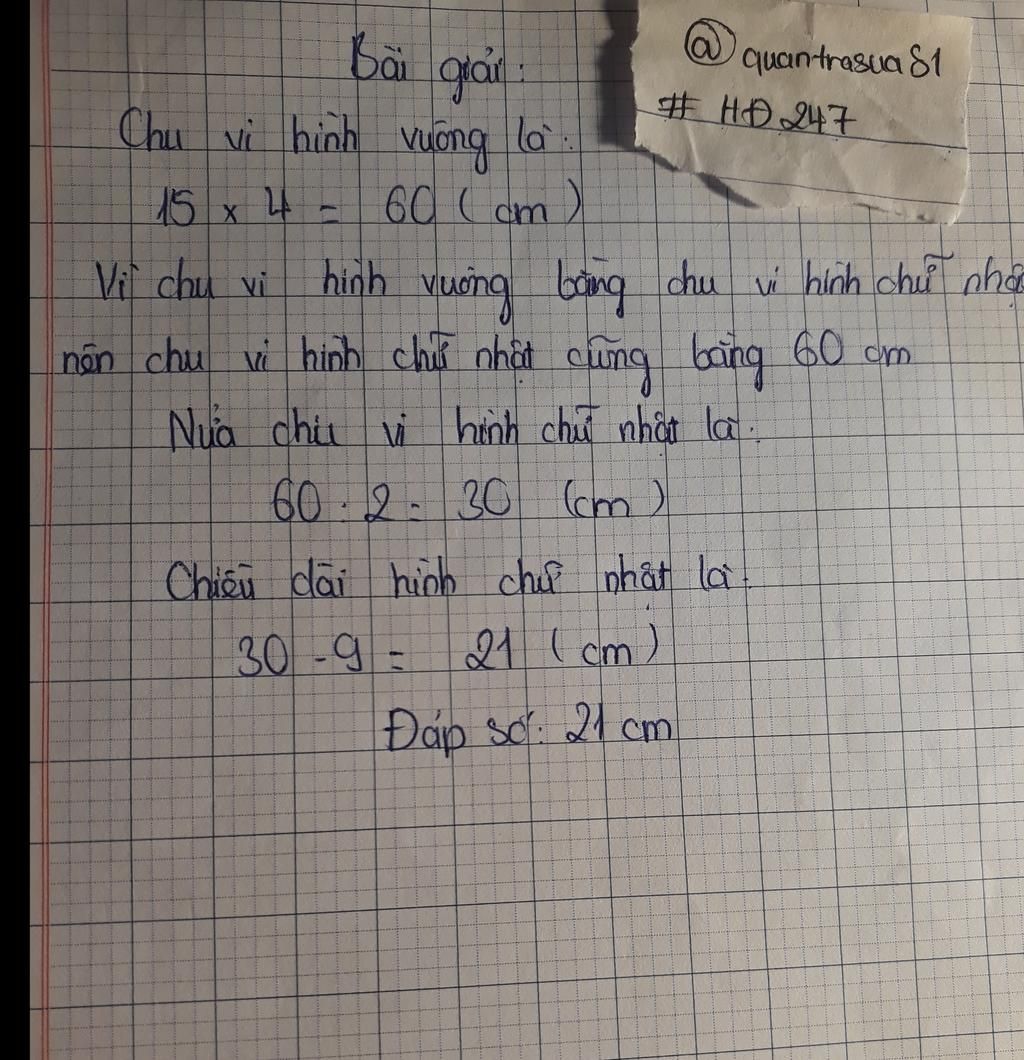 Bài giải:
@quantrasua81
# HĐ 247
Chu vi hình vuông là:
15 x 4 = 60 (cm)
Vì chu vi hình vuông bằng chu vi hình chữ
nên chu vi hình chữ nhật cũng bằng 60 cm
Nửa chu vi hình chữ nhật là:
60 : 2 = 30 (cm)
Chiều dài hình chữ nhật là:
30 - 9 = 21 (cm)
Đáp số: 21 cm